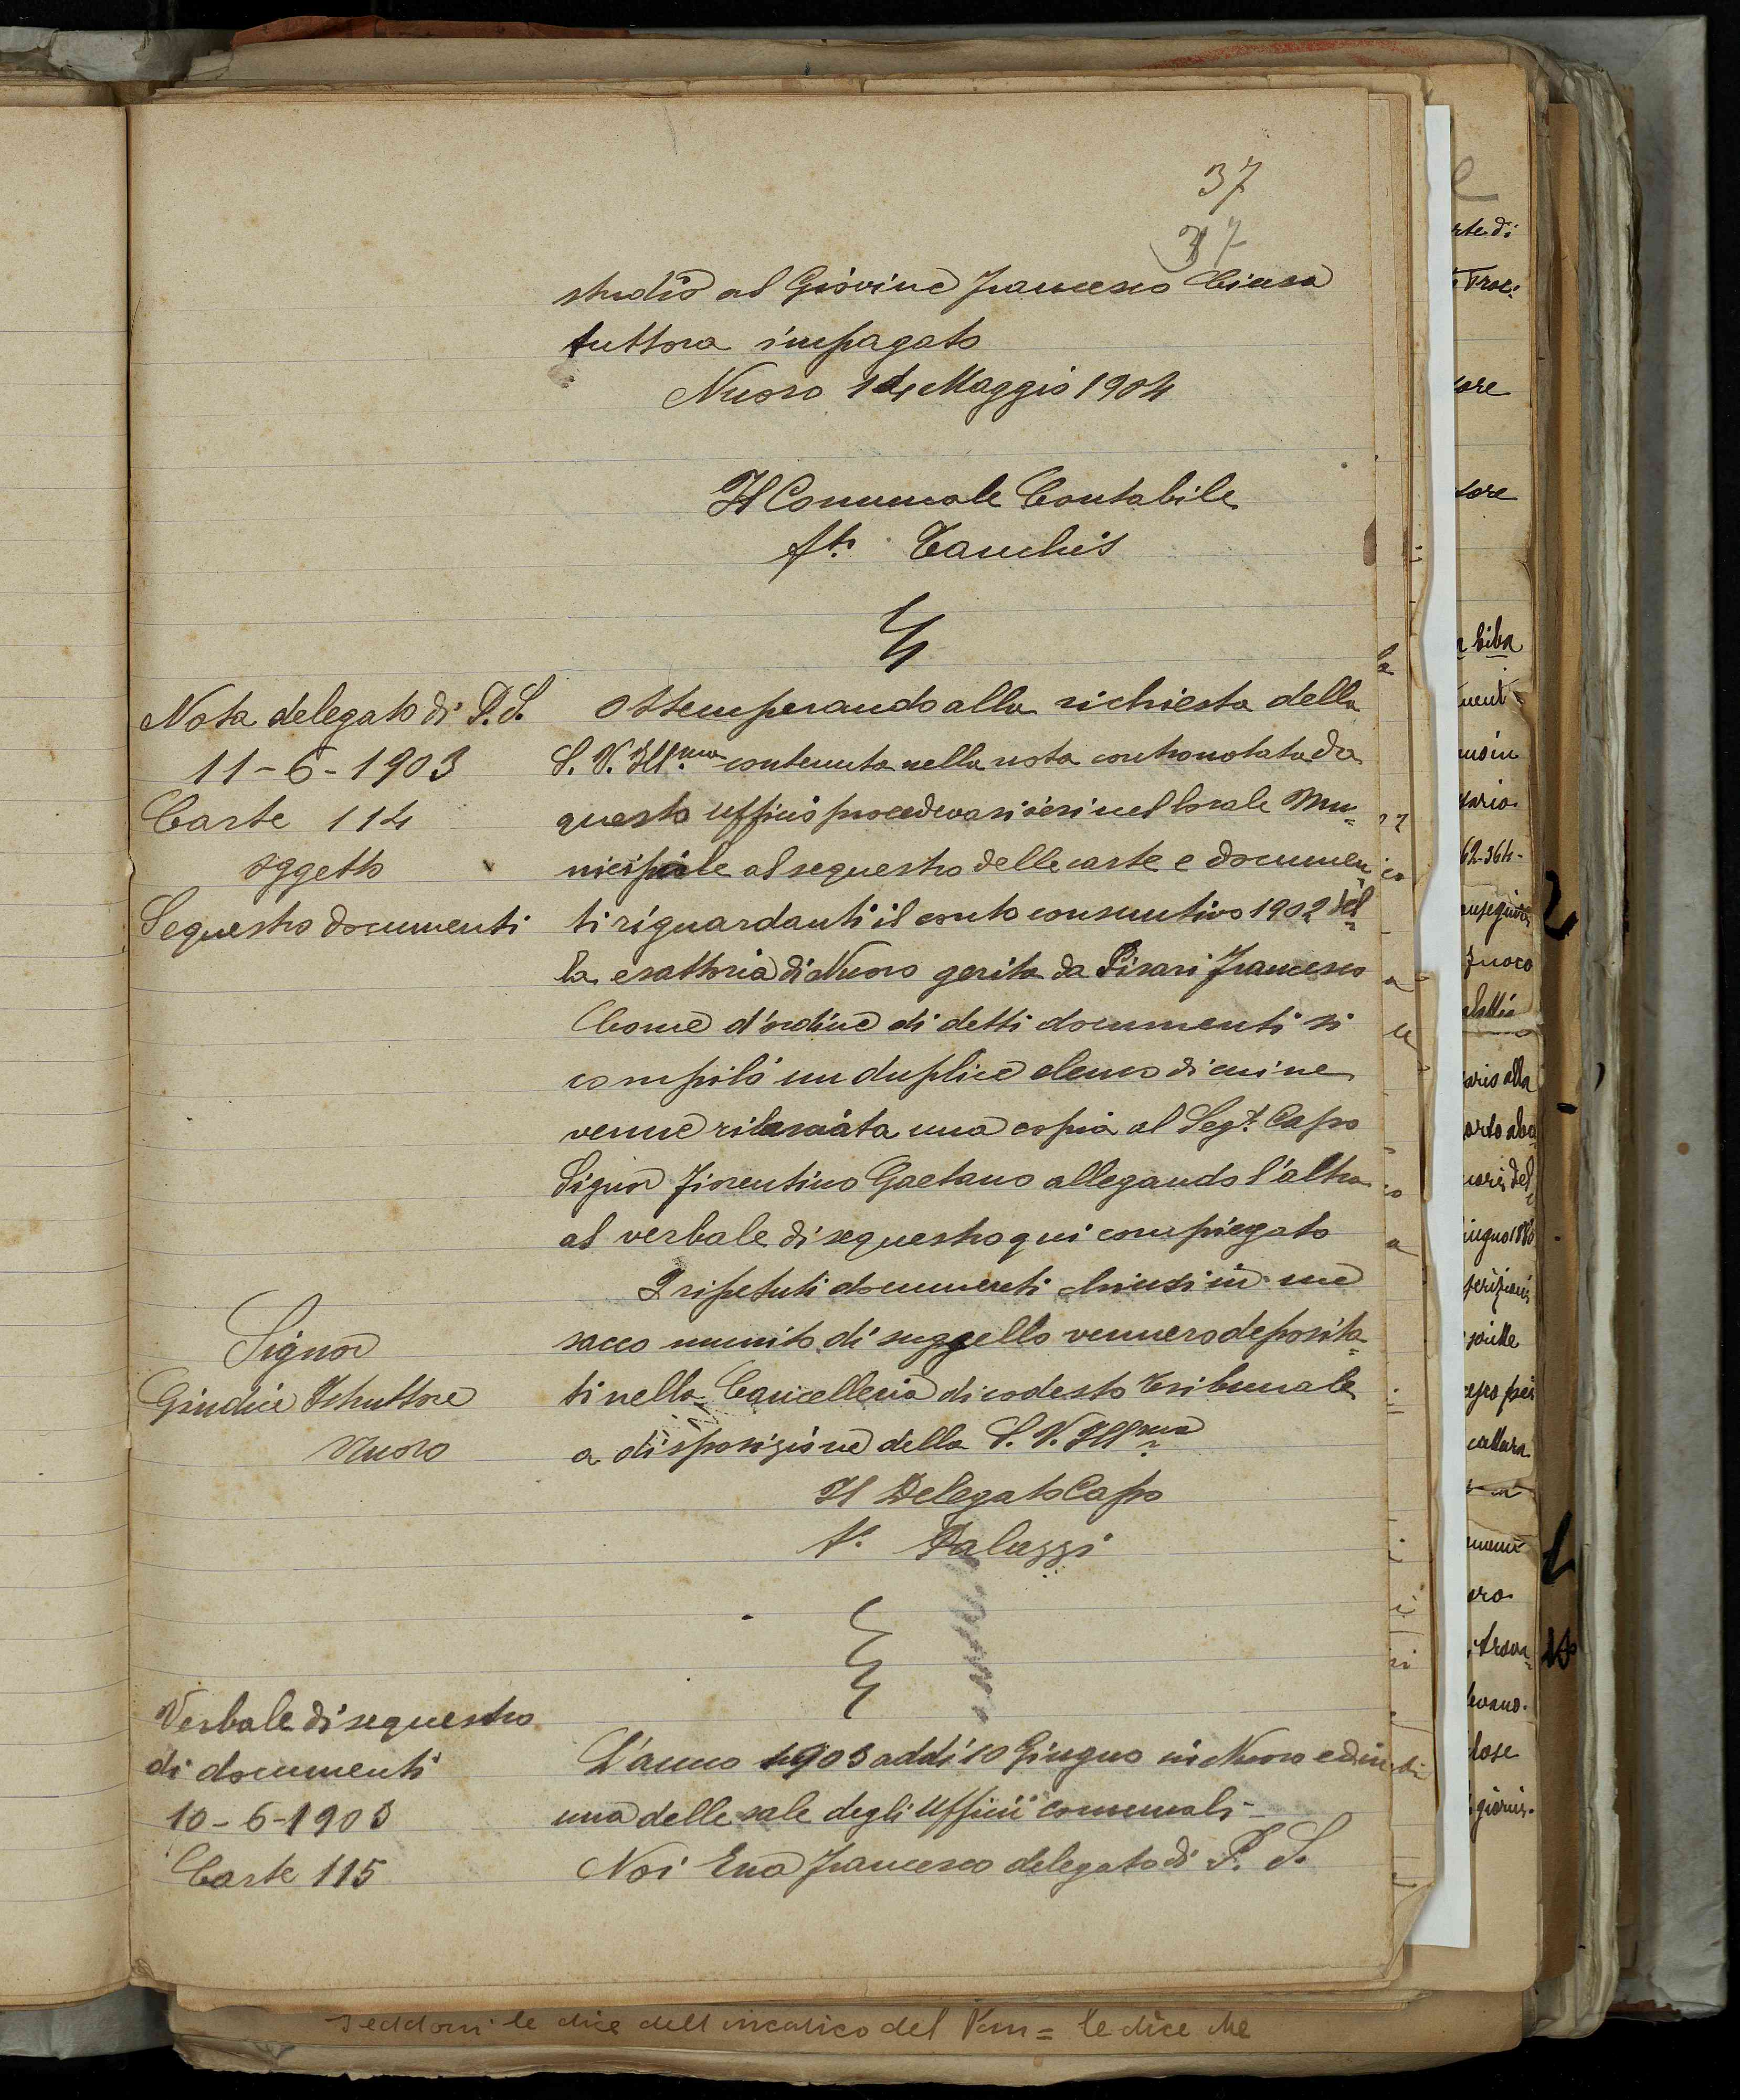 37
37
studio al Giovine Francesco Ciusa
tuttora impagato
Nuoro 14 Maggio 1904
Il Comunale Contabile
fto Canchis
Nota delegato di P. S.
11-6-1903
Carte 114
oggetto
Sequestro documenti
Ottemperando alla richiesta della
S. V. Ill.ma contenuta nella nota contronotata da
questo ufficio procedevasi ieri nel locale Mu=
nicipale al sequestro delle carte e documen=
ti riguardanti il conto consuntivo 1902 del=
la esattoria di Nuoro gerita da Pirari Francesco
Come d'ordine di detti documenti si
compilò un duplice elenco di cui ne
venne rilasciata una copia al Seg.o Capo
Signor Fiorentino Gaetano allegando l'altra
al verbale di sequestro qui compiegato
I ripetuti documenti chiusi in un
sacco munito di suggello vennero deposita=
ti nella Cancelleria di codesto tribunale
a disposizione della S. V. Ill.ma
Signor
Giudice Istruttore
Nuoro
Il Delegato Capo
f.o Paluzzi
Verbale di sequestro
di documenti
10-6-1903
Carte 115
L'anno 1903 addì 10 Giugno in Nuoro ed in
una delle sale degli Ufficii comunali-
Noi Ena Francesco delegato di P. S.
le dice dell'incarico del = le dice che